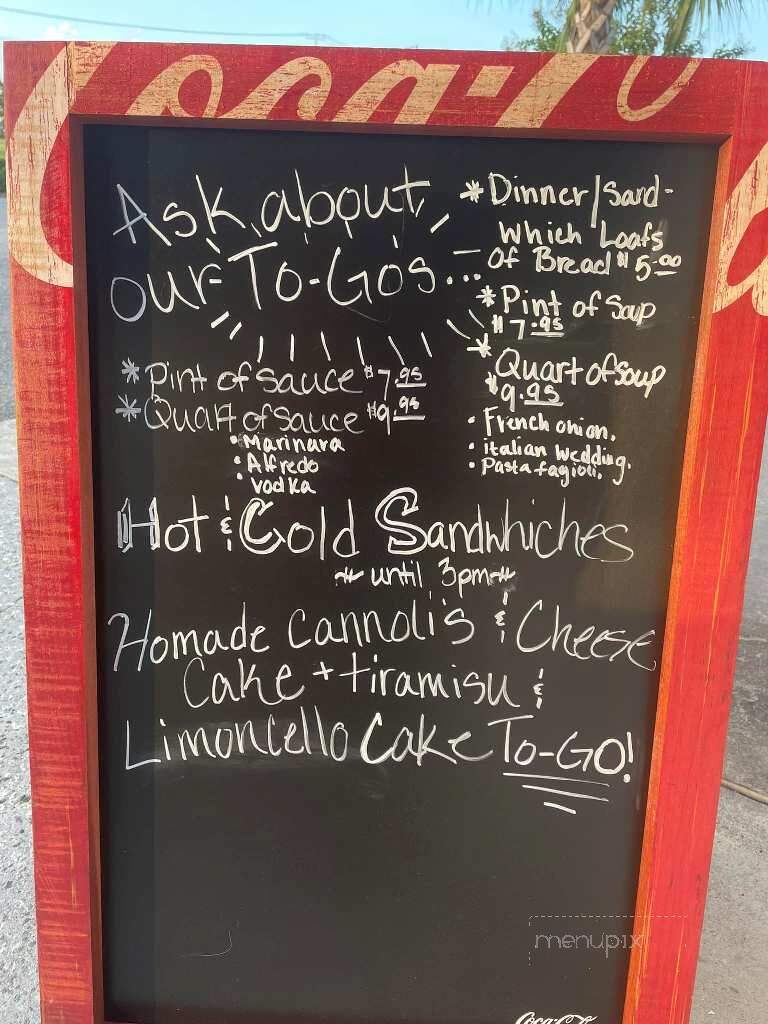 Coca-Co
Ask about
our To-Go's...
* Pint of sauce $7.95
* Quart of sauce $9.95
• Marinara
• Alfredo
• Vodka
* Dinner/Sand-
which Loafs
of Bread $5.00
* Pint of Soup
$7.95
* Quart of soup
$9.95
• French onion.
• italian wedding.
• Pasta fagioli.
Hot & Cold Sandwhiches
~ until 3pm ~
Homade Cannoli's & Cheese
Cake + tiramisu &
Limoncello Cake To-GO!
menupix
Coca-Co